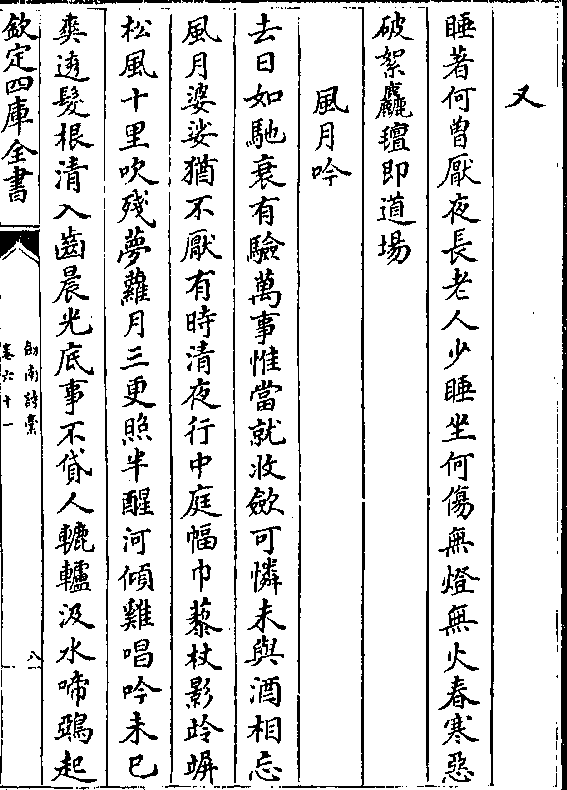 又
睡著何曾厭夜長老人少睡坐何傷無燈無火春寒惡
破絮麤氊即道場
風月吟
去日如馳衰有驗萬事惟當就收歛可憐未與酒相忘
風月婆娑猶不厭有時清夜行中庭幅巾藜杖影竛竮
松風十里吹殘夢蘿月三更照半醒河傾雞唱吟未已
爽透髮根清入齒晨光底事不貸人轆轤汲水啼鵶起
欽定四庫全書
劍南詩稾
卷六十一
八